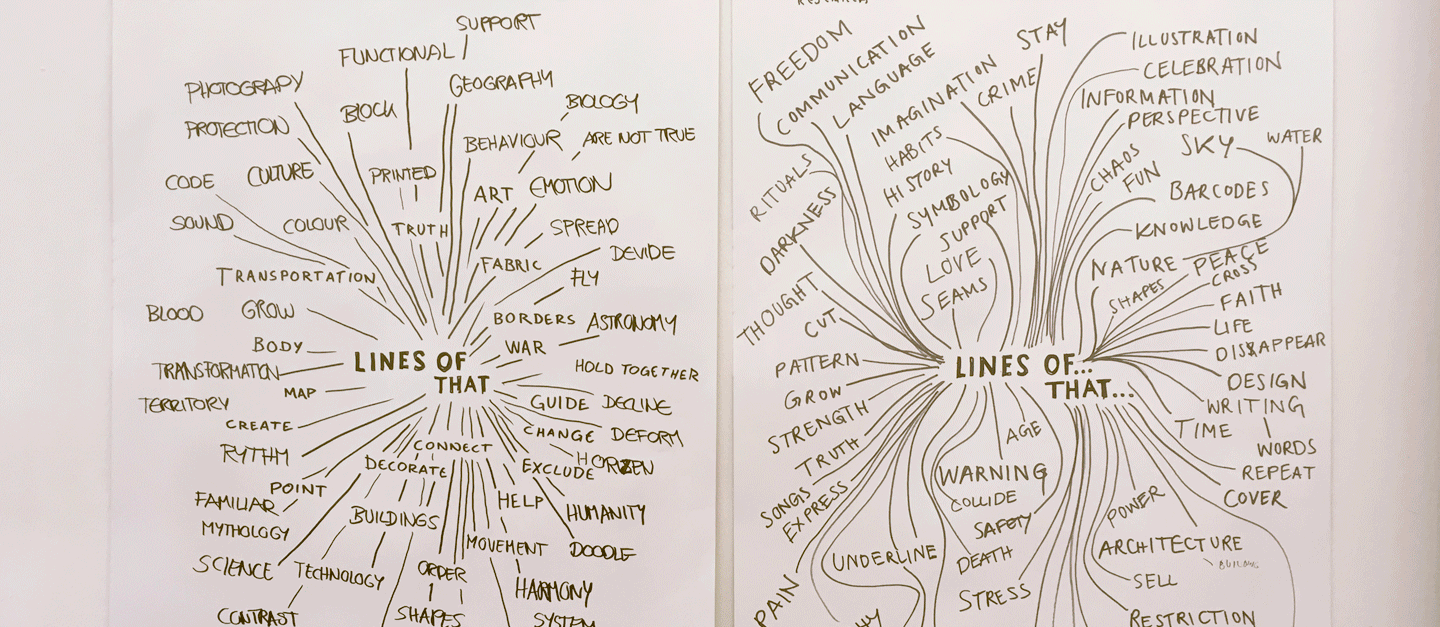 SUPPORT
FUNCTIONAL
PHOTOGRAPY
GEOGRAPHY
BLOCK
BIOLOGY
PROTECTION
BEHAVIOUR
ARE NOT TRUE
CODE
CULTURE
PRINTED
ART
EMOTION
SOUND
COLOUR
TRUTH
SPREAD
DEVIDE
TRANSPORTATION
FABRIC
FLY
BLOOD
GROW
BORDERS
ASTRONOMY
BODY
WAR
LINES OF
THAT
TRANSFORMATION
HOLD TOGETHER
MAP
TERRITORY
GUIDE
DECLINE
CREATE
CHANGE
DEFORM
RYTHM
CONNECT
DECORATE
EXCLUDE
POINT
FAMILIAR
HELP
MYTHOLOGY
BUILDINGS
HUMANITY
MOVEMENT
DOODLE
SCIENCE
TECHNOLOGY
ORDER
HARMONY
CONTRAST
SHAPES
SYSTEM
FREEDOM
COMMUNICATION
LANGUAGE
IMAGINATION
CRIME
STAY
ILLUSTRATION
CELEBRATION
INFORMATION
PERSPECTIVE
SKY
WATER
HABITS
CHAOS
FUN
RITUALS
HISTORY
BARCODES
DARKNESS
SYMBOLOGY
SUPPORT
KNOWLEDGE
LOVE
NATURE
PEACE
CROSS
SEAMS
SHAPES
THOUGHT
FAITH
CUT
LIFE
PATTERN
LINES OF...
THAT...
DISSAPPEAR
GROW
DESIGN
STRENGTH
WRITING
TRUTH
AGE
TIME
WORDS
WARNING
REPEAT
SONGS
EXPRESS
COLLIDE
POWER
COVER
SAFETY
UNDERLINE
DEATH
ARCHITECTURE
SELL
PAIN
STRESS
RESTRICTION